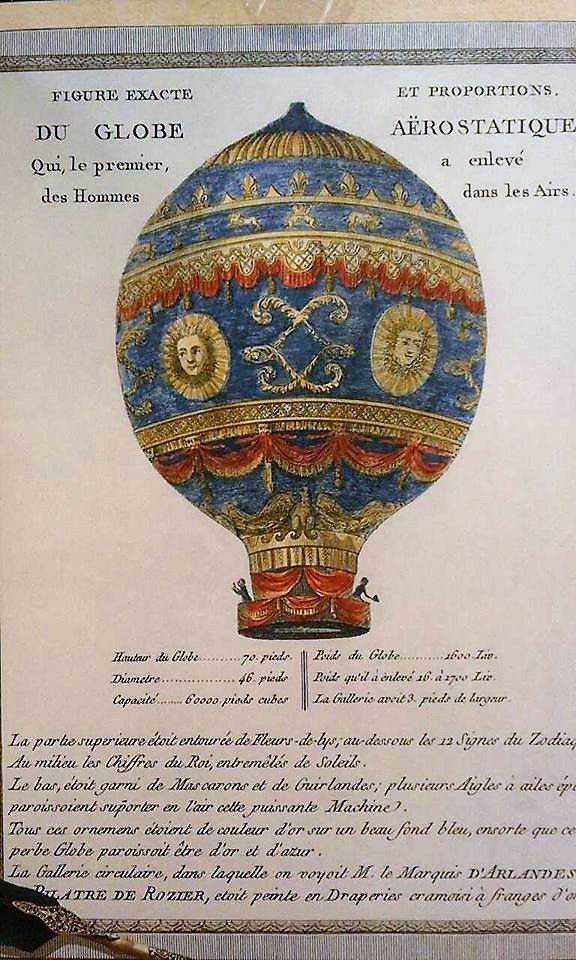 FIGURE EXACTE ET PROPORTIONS,
DU GLOBE AËROSTATIQUE
Qui, le premier, a enlevé
des Hommes dans les Airs.
Hauteur du Globe..........70. pieds. Poids du Globe...........1600. Liv.
Diametre.................46. pieds Poids qu'il à énlevé 16. à 1700 Liv.
Capacité......60000. pieds cubes La Gallerie avoit 3. pieds de largeur.
La partie superieure étoit entourée de Fleurs-de-lys; au-dessous les 12 Signes du Zodiaq
Au milieu les Chiffres du Roi, entremêlés de Soleils.
Le bas, étoit garni de Mascarons et de Guirlandes; plusieurs Aigles à ailes épl
paroissoient suporter en l'air cette puissante Machine.
Tous ces ornemens étoient de couleur d'or sur un beau fond bleu, ensorte que ce
perbe Globe paroissoit être d'or et d'azur.
La Gallerie circulaire, dans laquelle on voyoit M. le Marquis D'ARLANDES
PILATRE DE ROZIER, etoit peinte en Draperies cramoisi à franges d'o